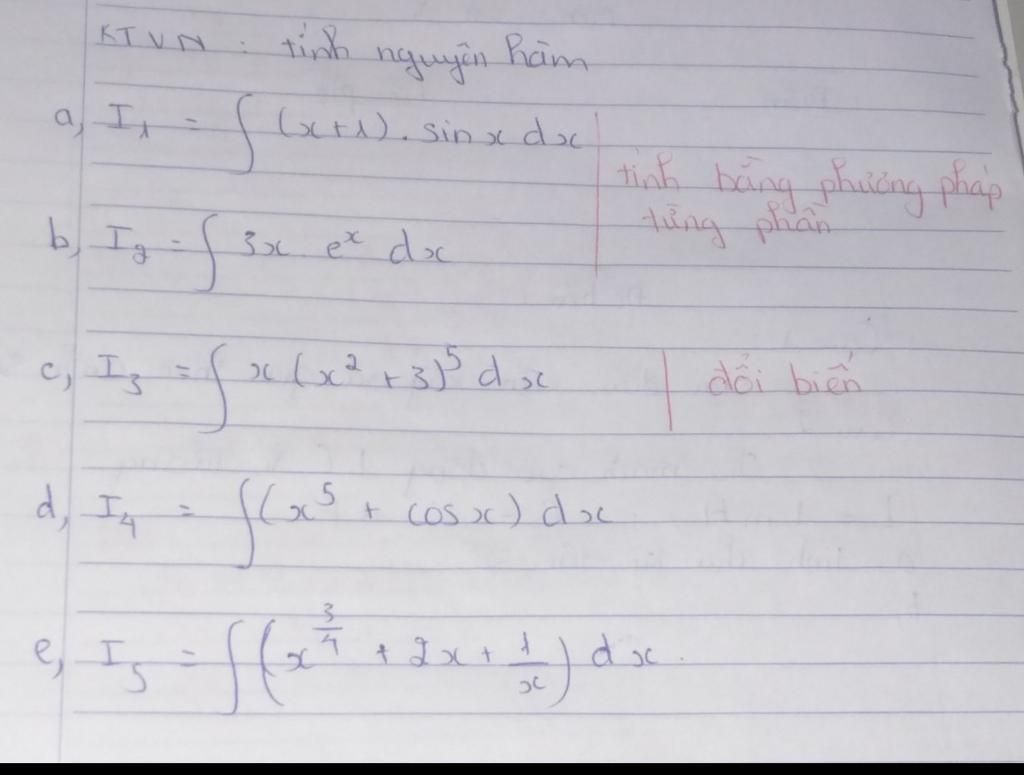 KTVN : tính nguyên hàm
a, I₁ = ∫ (x+1) . sin x dx
tính bằng phương pháp
từng phần
b, I₂ = ∫ 3x eˣ dx
c, I₃ = ∫ x (x² + 3)⁵ dx | đổi biến
d, I₄ = ∫ (x⁵ + cos x) dx
e, I₅ = ∫ (x^(3/4) + 2x + 1/x) dx.